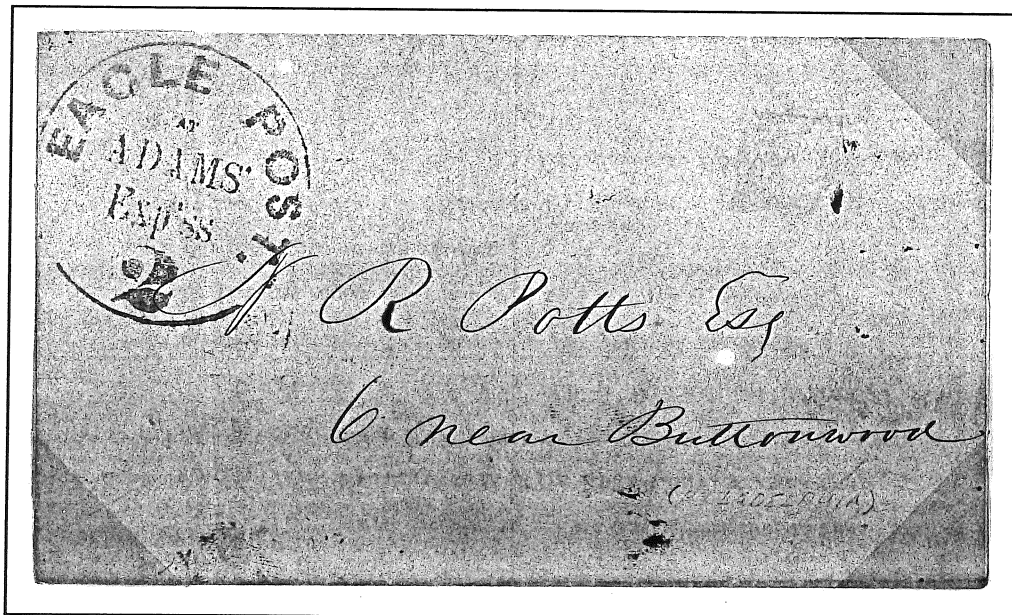 EAGLE POST.
AT
ADAMS'
Exp'ss
2
N R Potts Esq
6 near Buttonwood